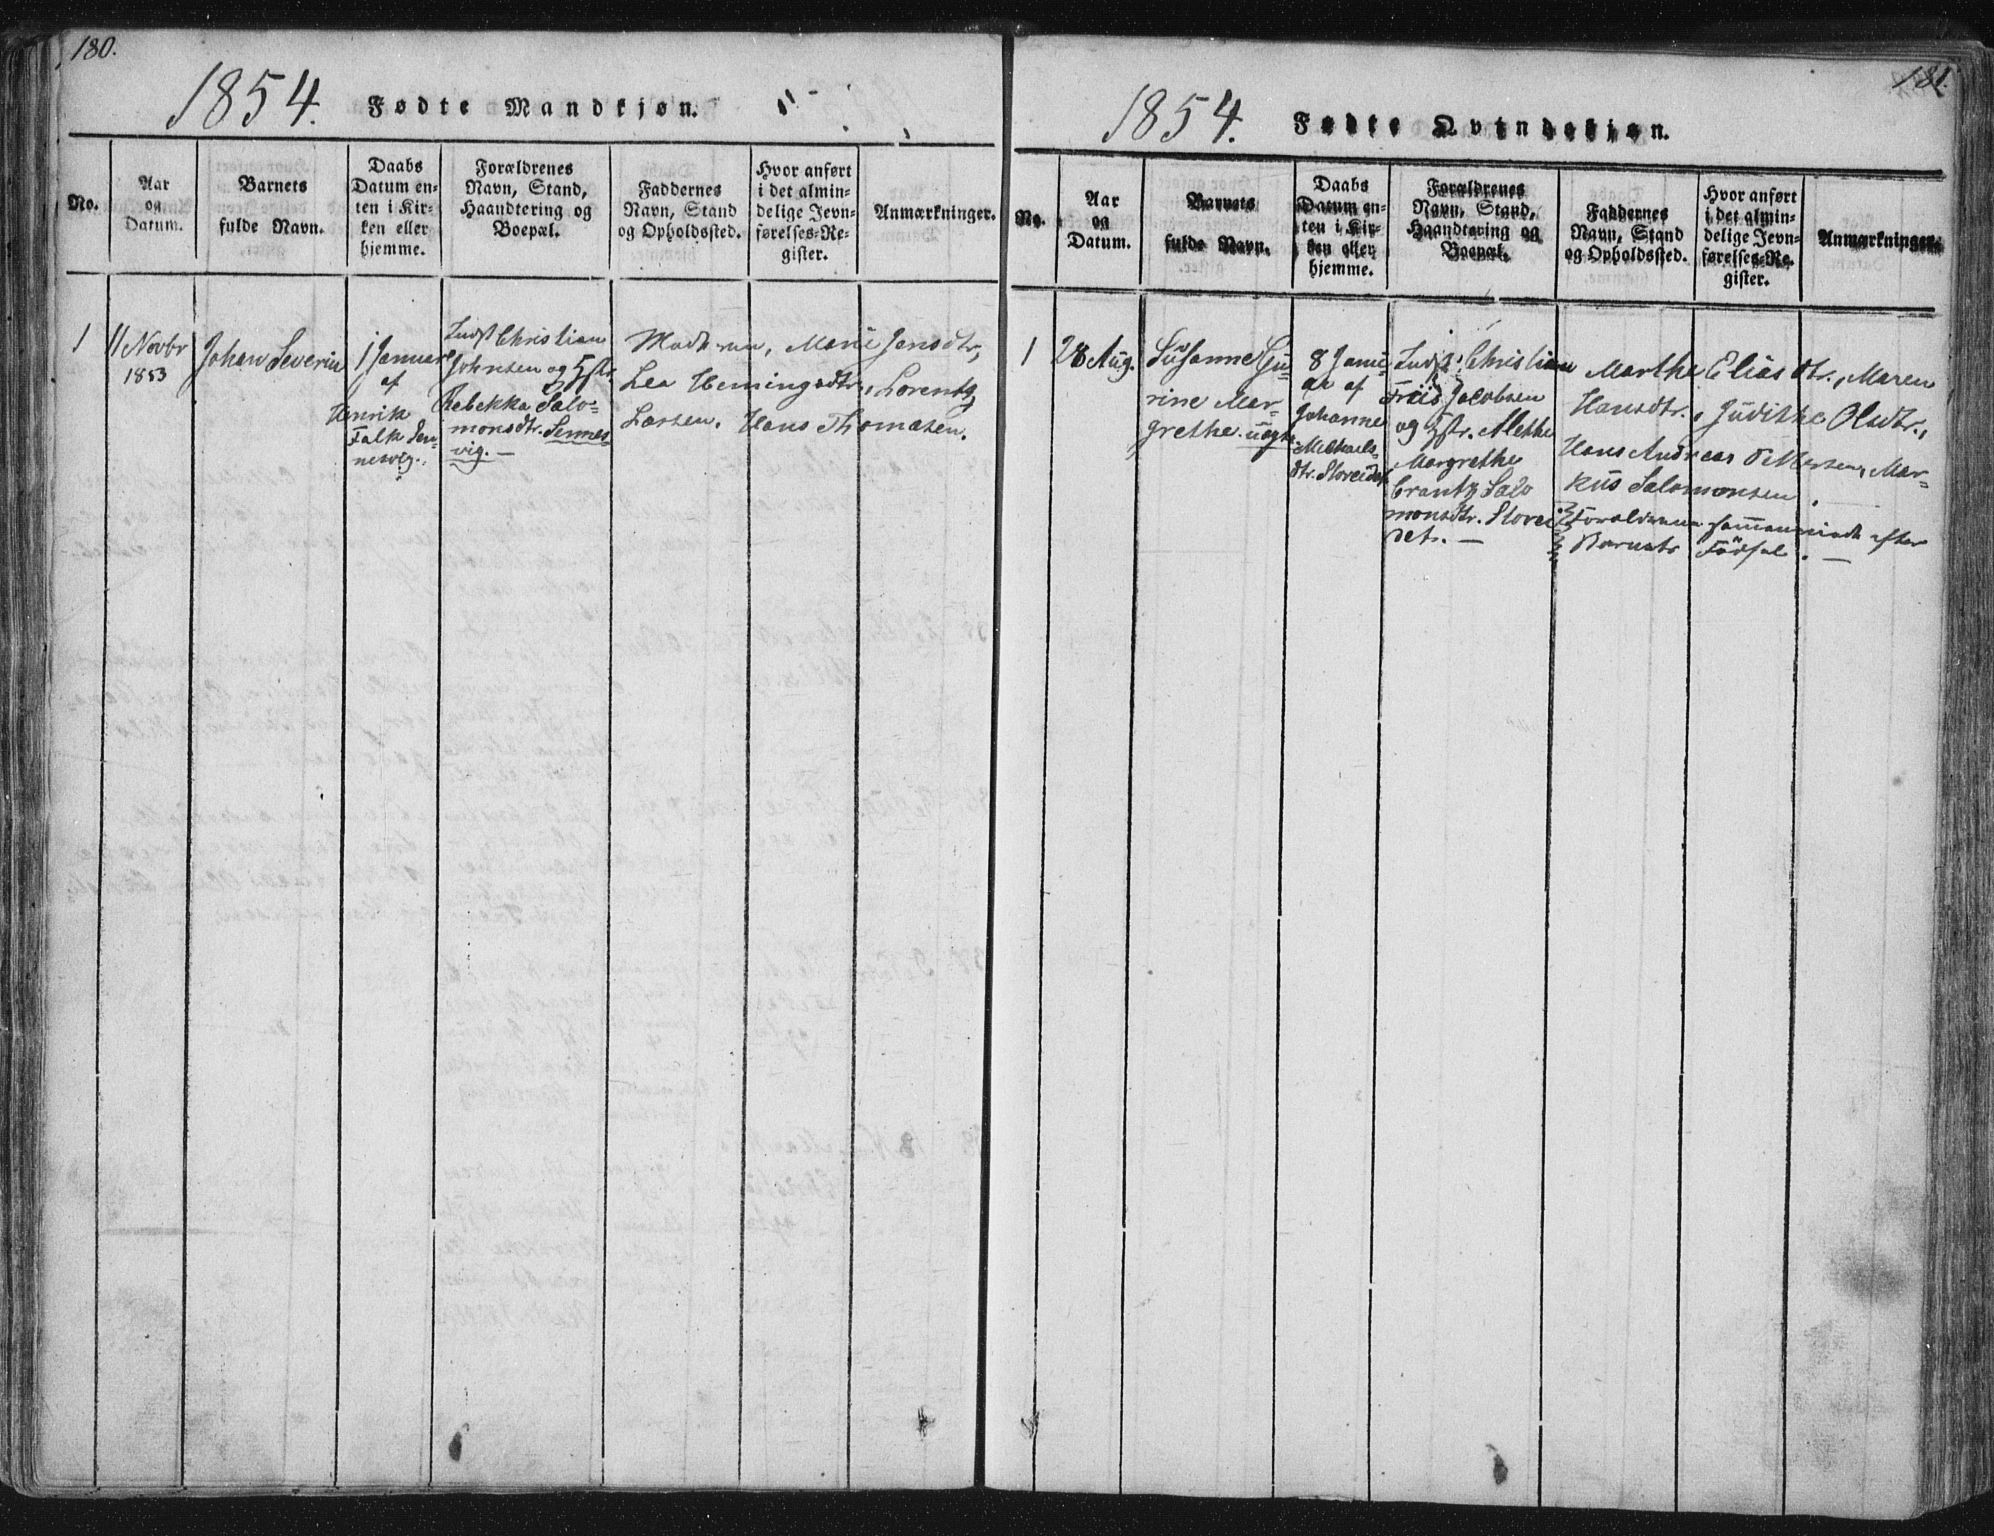 180.
1854. Fødte Mandkjøn.
No.
Aar
og
Datum.
Barnets
fulde Navn.
Daabs
Datum en-
ten i Kir-
ken eller
hjemme.
Forældrenes
Navn, Stand,
Haandtering og
Boepæl.
Faddernes
Navn, Stand
og Opholdssted.
Hvor anført
i det almin-
delige Jevn-
førelses-Re-
gister.
Anmærkninger.
1
11 Novbr
1853
Johan Severin
1 Januar
af
Henrik
Falk Sen-
nesvig.
Indst Christian
Johnsen og Hstr.
Rebekka Salo-
monsdtr. Sennes-
vig. —
Moderen, Marie Jensdtr,
Lea Hemingsdtr, Lorentz
Larsen. Hans Thomasen.
181.
1854. Fødte Qvindekjøn.
No.
Aar
og
Datum.
Barnets
fulde Navn.
Daabs
Datum en-
ten i Kir-
ken eller
hjemme.
Forældrenes
Navn, Stand,
Haandtering og
Boepæl.
Faddernes
Navn, Stand
og Opholdssted.
Hvor anført
i det almin-
delige Jevn-
førelses-Re-
gister.
Anmærkninger.
1
28 Aug.
Susanne Gu-
rine Mar-
grethe. uægte.
8 Janu-
ar af
Johanne
Mikkaels-
dtr. Storeidet
Indst. Christian
Friis Jacobsen
og Hstr. Alethe
Margrethe
Crantz Salo
monsdtr. Storei
det. —
Marthe Eliasdtr., Maren
Hansdtr., Judithe Olsdtr.,
Hans Andreas Pedersen, Mar-
kus Salomonsen.
Forældrene sammenviede efter
Barnets Födsel. —